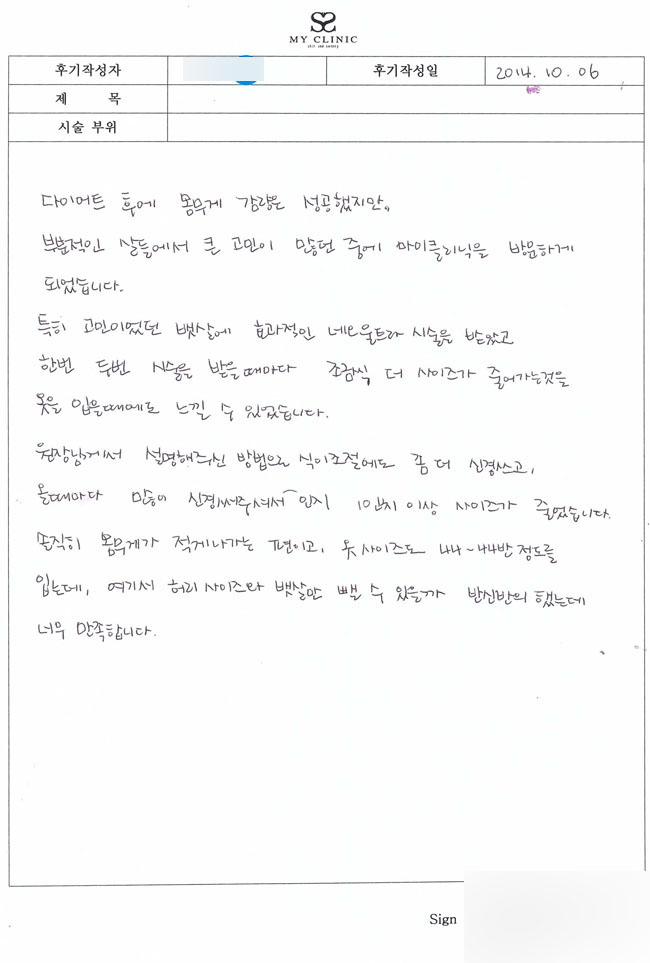 MY CLINIC
skin and beauty
후기작성자 후기작성일 2014. 10. 06
제 목
시술 부위
다이어트 후에 몸무게 감량은 성공했지만,
부분적인 살들에서 큰 고민이 많던 중에 마이클리닉을 방문하게
되었습니다.
특히 고민이었던 뱃살에 효과적인 네오울트라 시술을 받았고
한번 두번 시술을 받을때마다 조금씩 더 사이즈가 줄어가는것을
옷을 입을때에도 느낄 수 있었습니다.
원장님께서 설명해주신 방법으로 식이조절에도 좀 더 신경쓰고,
올때마다 많이 신경써주셔서 인지 10인치 이상 사이즈가 줄었습니다.
솔직히 몸무게가 적게나가는 편이고, 옷 사이즈도 44~44반 정도를
입는데, 여기서 허리 사이즈와 뱃살만 뺄 수 있을까 반신반의 했는데
너무 만족합니다.
Sign